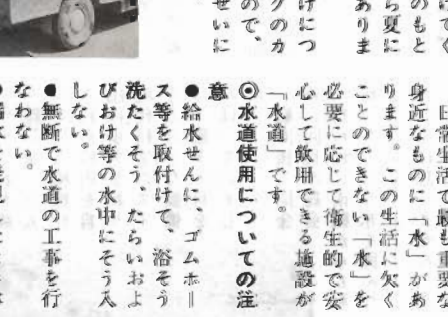 けにつ
グのカ
ので、
せいに
日常生活で最も重要な
身近なものに「水」があ
ります。この生活に欠く
ことのできない「水」を
必要に応じて衛生的で安
心して飲用できる施設が
「水道」です。
◎水道使用についての注
意
●給水せんに、ゴムホー
ス等を取付けて、浴そう
洗たくそう、たらいおよ
びおけ等の水中にそう入
しない。
●無断で水道の工事を行
なわない。